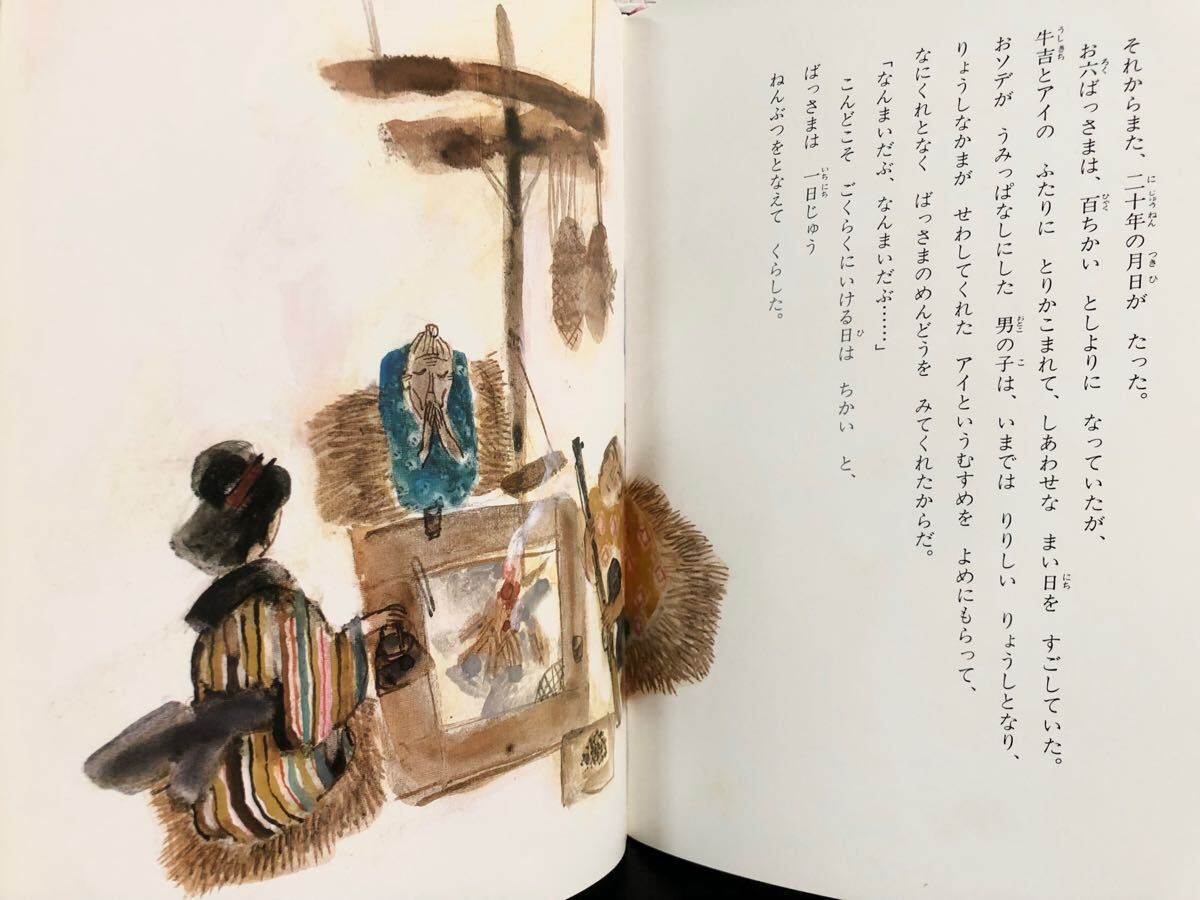 それからまた、二十年の月日が たった。
お六ばっさまは、百ちかい としよりに なっていたが、
牛吉とアイの ふたりに とりかこまれて、しあわせな まい日を すごしていた。
おソデが うみっぱなしにした 男の子は、いまでは りりしい りょうしとなり、
りょうしなかまが せわしてくれた アイというむすめを よめにもらって、
なにくれとなく ばっさまのめんどうを みてくれたからだ。
「なんまいだぶ、なんまいだぶ……」
こんどこそ ごくらくにいける日は ちかい と、
ばっさまは 一日じゅう
ねんぶつをとなえて くらした。